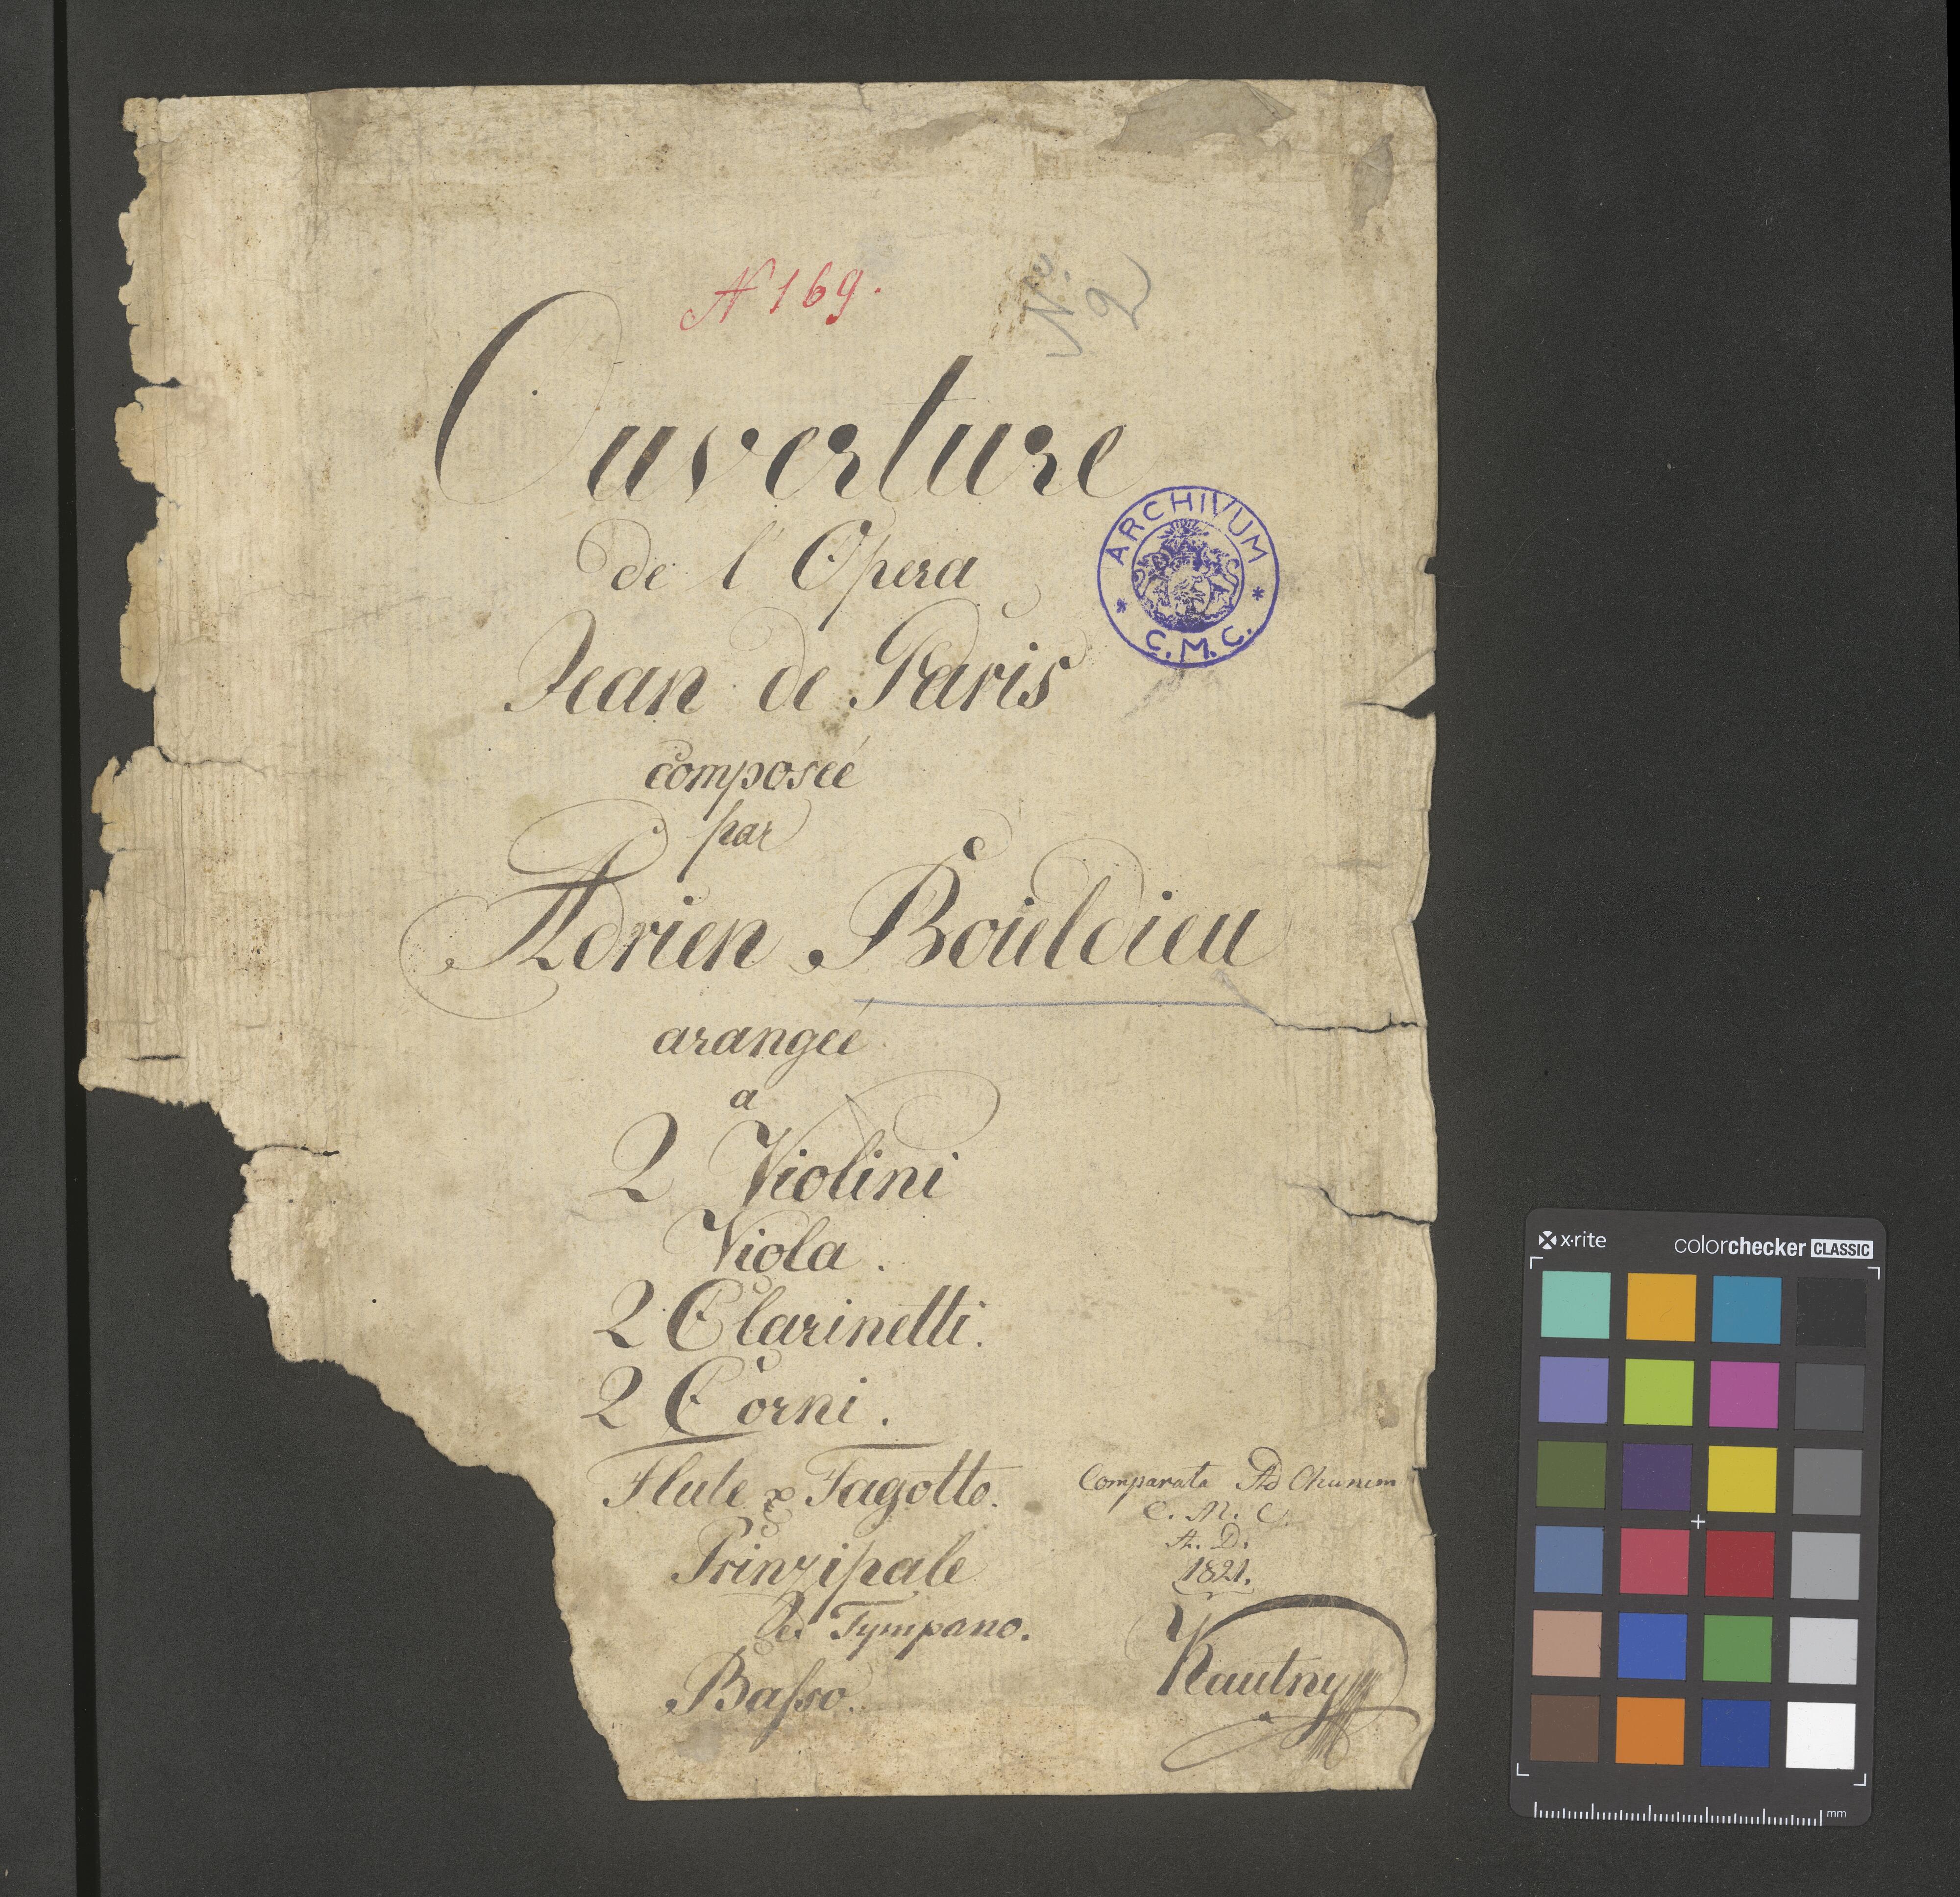 N 169.
No. 2
Ouverture
de l'Opera
Jean de Paris
composée
par
Adrien Boieldieu
arangée
a
2 Violini
Viola.
2 Clarinetti.
2 Corni.
Flute & Fagotto.
Prinzipale
de Tympano.
Basso.
Comparata Ad Chorum
C. M. C.
A. D.
1821.
Kautny
ARCHIVUM
* C. M. C. *
x·rite
colorchecker CLASSIC
mm